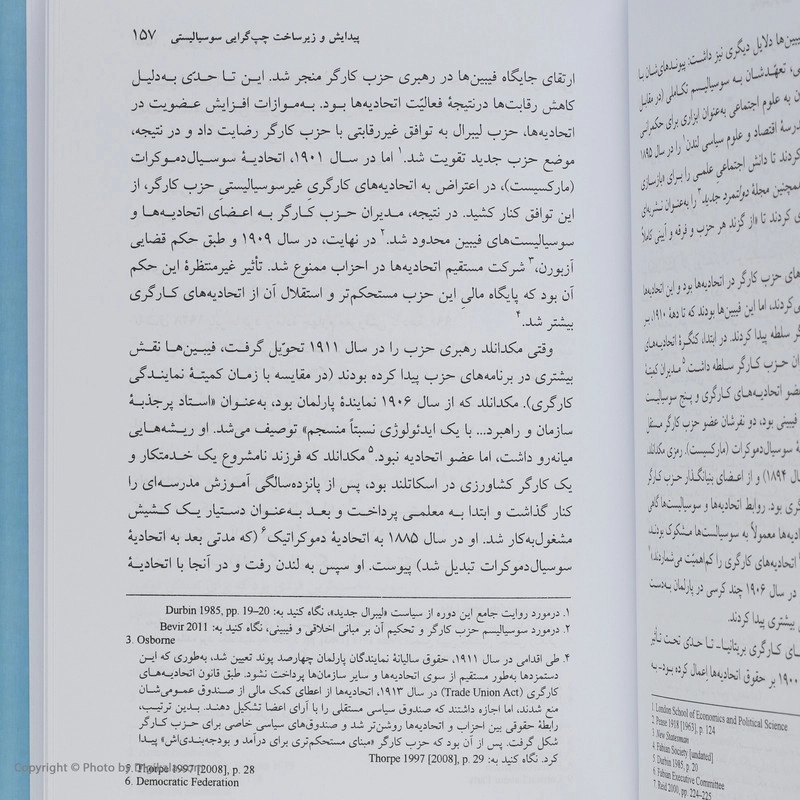 پیدایش و زیرساخت چپ‌گرایی سوسیالیستی ۱۵۷
ارتقای جایگاه فیبین‌ها در رهبری حزب کارگر منجر شد. این تا حدّی به‌دلیل
کاهش رقابت‌ها درنتیجهٔ فعالیّت اتحادیه‌ها بود. به‌موازات افزایش عضویت در
اتحادیه‌ها، حزب لیبرال به توافق غیررقابتی با حزب کارگر رضایت داد و در نتیجه،
موضع حزب جدید تقویت شد.۱ اما در سال ۱۹۰۱، اتحادیهٔ سوسیال‌دموکرات
(مارکسیست)، در اعتراض به اتحادیه‌های کارگریِ غیرسوسیالیستیِ حزب کارگر، از
این توافق کنار کشید. در نتیجه، مدیران حزب کارگر به اعضای اتحادیه‌ها و
سوسیالیست‌های فیبین محدود شد.۲ در نهایت، در سال ۱۹۰۹ و طبق حکم قضایی
آزبورن،۳ شرکت مستقیم اتحادیه‌ها در احزاب ممنوع شد. تأثیر غیرمنتظرهٔ این حکم
آن بود که پایگاه مالیِ این حزب مستحکم‌تر و استقلال آن از اتحادیه‌های کارگری
بیشتر شد.۴
وقتی مکدانلد رهبری حزب را در سال ۱۹۱۱ تحویل گرفت، فیبین‌ها نقش
بیشتری در برنامه‌های حزب پیدا کرده بودند (در مقایسه با زمان کمیتهٔ نمایندگی
کارگری). مکدانلد که از سال ۱۹۰۶ نمایندهٔ پارلمان بود، به‌عنوان «استاد پرجذبهٔ
سازمان و راهبرد... با یک ایدئولوژی نسبتاً منسجم» توصیف می‌شد. او ریشه‌هایی
میانه‌رو داشت، اما عضو اتحادیه نبود.۵ مکدانلد که فرزند نامشروع یک خدمتکار و
یک کارگر کشاورزی در اسکاتلند بود، پس از پانزده‌سالگی آموزش مدرسه‌ای را
کنار گذاشت و ابتدا به معلمی پرداخت و بعد به‌عنوان دستیار یک کشیش
مشغول‌به‌کار شد. او در سال ۱۸۸۵ به اتحادیهٔ دموکراتیک۶ (که مدتی بعد به اتحادیهٔ
سوسیال‌دموکرات تبدیل شد) پیوست. او سپس به لندن رفت و در آنجا با اتحادیهٔ
۱. درمورد روایت جامع این دوره از سیاست «لیبرال جدید»، نگاه کنید به: Durbin 1985, pp. 19–20
۲. درمورد سوسیالیسم حزب کارگر و تحکیم آن بر مبانی اخلاقی و فیبینی، نگاه کنید به: Bevir 2011
3. Osborne
۴. طی اقدامی در سال ۱۹۱۱، حقوق سالیانهٔ نمایندگان پارلمان چهارصد پوند تعیین شد، به‌طوری که این
دستمزدها به‌طور مستقیم از سوی اتحادیه‌ها و سایر سازمان‌ها پرداخت نشود. طبق قانون اتحادیه‌های
کارگری (Trade Union Act) در سال ۱۹۱۳، اتحادیه‌ها از اعطای کمک مالی از صندوق عمومی‌شان
منع شدند، اما اجازه داشتند که صندوق سیاسی مستقلی را با آرای اعضا تشکیل دهند. بدین ترتیب،
رابطهٔ حقوقی بین احزاب و اتحادیه‌ها روشن‌تر شد و صندوق‌های سیاسی خاصی برای حزب کارگر
شکل گرفت. پس از آن بود که حزب کارگر «مبنای مستحکم‌تری برای درآمد و بودجه‌بندی‌اش» پیدا
کرد. نگاه کنید به: Thorpe 1997 [2008], p. 29
5. Thorpe 1997 [2008], p. 28
6. Democratic Federation
فیبین‌ها دلایل دیگری نیز داشت: پیوندهای‌شان با
تعهّدشان به سوسیالیسم تکاملی (در مقابل
به علوم اجتماعی به‌عنوان ابزاری برای حکمرانی
مدرسهٔ اقتصاد و علوم سیاسی لندن۱ را در سال ۱۸۹۵
کردند تا دانش اجتماعیِ علمی را برای «بازسازی
همچنین مجلهٔ دولتمرد جدید۳ را به‌عنوان نشریه‌ای
کردند تا «از گزند هر حزب و فرقه و آیینی کاملاً
های حزب کارگر در اتحادیه‌ها بود و این اتحادیه‌ها
می‌کردند، اما این فیبین‌ها بودند که تا دههٔ ۱۹۱۰ بر
سلطه پیدا کردند. در ابتدا، کنگرهٔ اتحادیه‌های
حزب کارگر سلطه داشت.۵ مدیران کمیتهٔ
عضو اتحادیه‌های کارگری و پنج سوسیالیست
فیبینی بود، دو نفرشان عضو حزب کارگر مستقل
سوسیال‌دموکرات (مارکسیست). رمزی مکدانلد
سال ۱۸۹۴) و از اعضای بنیانگذار حزب کارگر
بود. روابط اتحادیه‌ها و سوسیالیست‌ها گاهی
معمولاً به سوسیالست‌ها مشکوک بودند،
اتحادیه‌های کارگری را کم‌اهمیّت می‌شماردند،۷
در سال ۱۹۰۶ چند کرسی در پارلمان به‌دست
بیشتری پیدا کردند.
کارگری بریتانیا- تا حدی تحت تأثیر
۱۹۰۰ بر حقوق اتحادیه‌ها اِعمال کرده بود- به
1 London School of Economics and Political Science
2. Pease 1918 [1963], p. 124
3. New Statesman
4. Fabian Society [undated]
5. Durbin 1985, p. 20
6. Fabian Executive Committee
7. Reid 2000, pp. 224–225
Copyright © Photo by Digikala.com